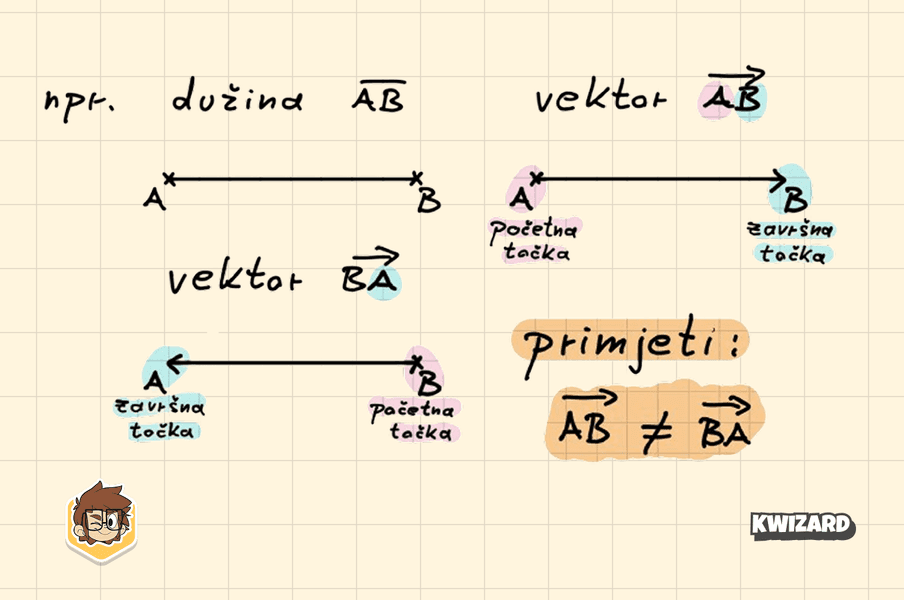 npr. dužina A̅B̅
A B
vektor A⃗B⃗
A B
početna točka
završna točka
vektor B⃗A⃗
A B
završna točka
početna točka
primjeti:
A⃗B⃗ ≠ B⃗A⃗
KWIZARD